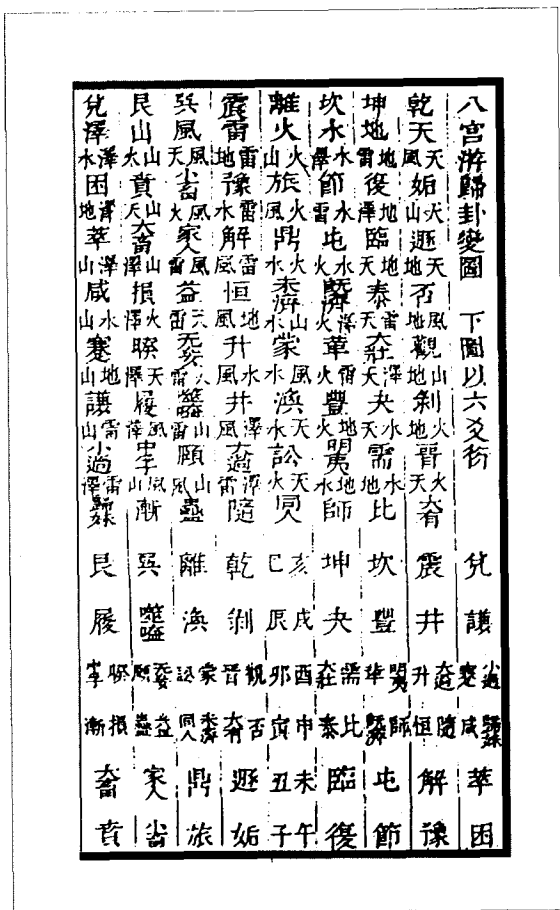 八宮游歸卦變圖 下圖以六爻衍 兌 謙 小過蹇 歸妹咸 萃 困
乾天 天風姤 天山遯 天地否 風地觀 山地剝 火地晉 火天大有 震 井 大過升 隨恒 解 豫
坤地 地雷復 地澤臨 地天泰 雷天大壯 澤天夬 水天需 水地比 坎 豐 明夷革 師既濟 屯 節
坎水 水澤節 水雷屯 水火既濟 澤火革 雷火豐 地火明夷 地水師 坤 夬 需大壯 比泰 臨 復
離火 火山旅 火風鼎 火水未濟 山水蒙 風水渙 天水訟 天火同人 亥巳 戌辰 酉卯 申寅 未丑 午子
震雷 雷地豫 雷水解 雷風恒 地風升 水風井 澤風大過 澤雷隨 乾 剝 觀晉 否大有 遯 姤
巽風 風天小畜 風火家人 風雷益 天雷无妄 火雷噬嗑 山雷頤 山風蠱 離 渙 蒙訟 未濟同人 鼎 旅
艮山 山火賁 山天大畜 山澤損 火澤睽 天澤履 風澤中孚 風山漸 巽 噬嗑 无妄頤 益蠱 家人 小畜
兌澤 澤水困 澤地萃 澤山咸 水山蹇 地山謙 雷山小過 雷澤歸妹 艮 履 睽中孚 損漸 大畜 賁